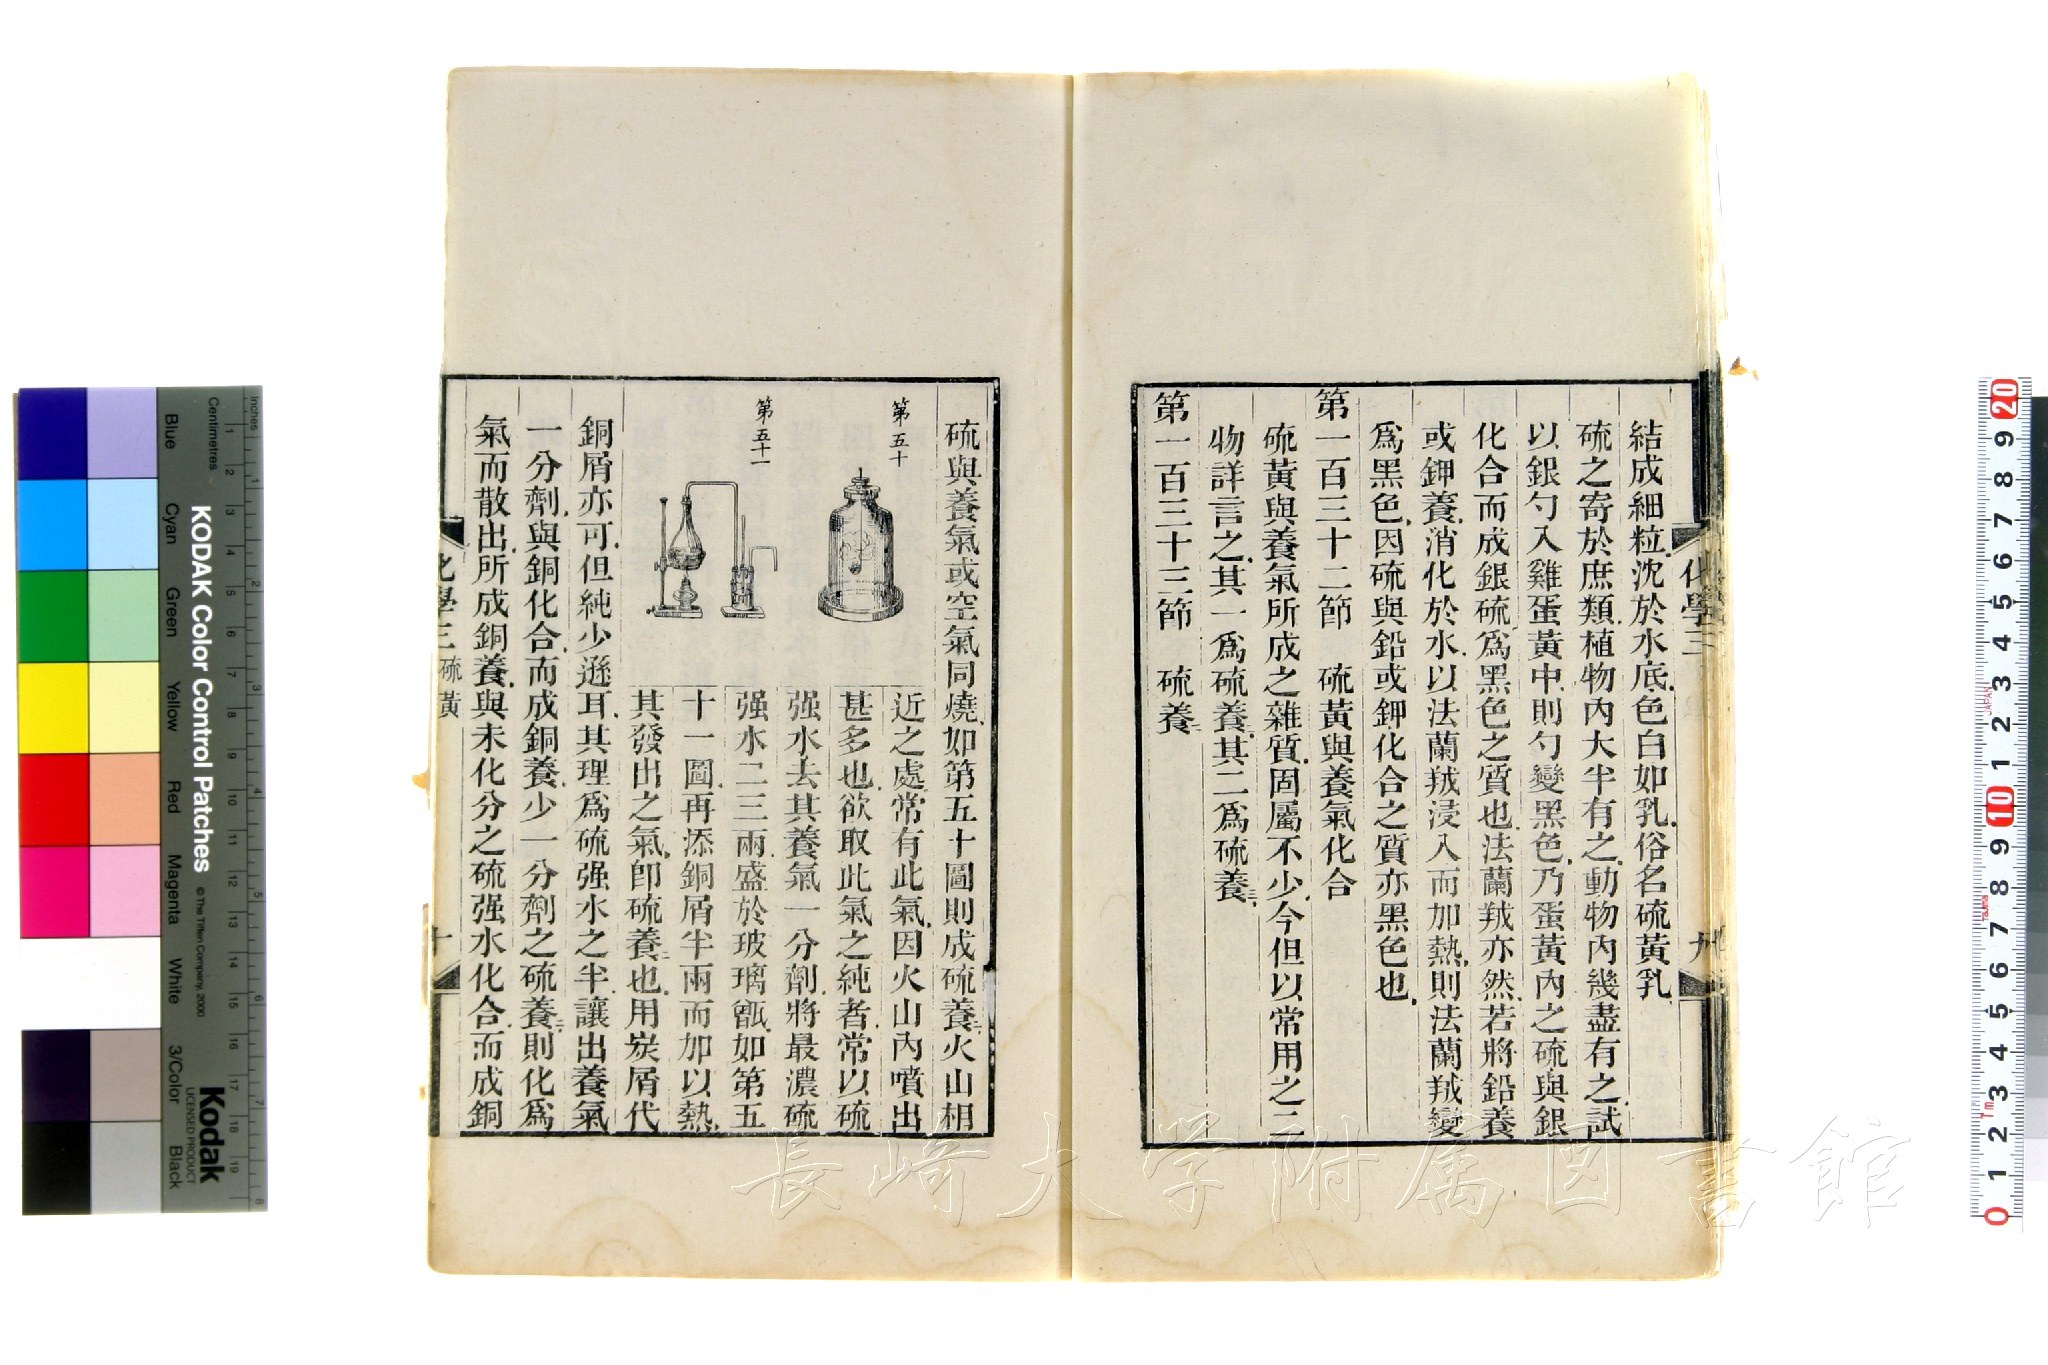 結成細粒沈於水底色白如乳俗名硫黃乳
硫之寄於庶類植物內大半有之動物內幾盡有之試
以銀勺入雞蛋黃中則勺變黑色乃蛋黃內之硫與銀
化合而成銀硫爲黑色之質也法蘭絨亦然若將鉛養
或鉀養消化於水以法蘭絨浸入而加熱則法蘭絨變
爲黑色因硫與鉛或鉀化合之質亦黑色也
第一百三十二節 硫黃與養氣化合
硫黃與養氣所成之雜質固屬不少今但以常用之二
物詳言之其一爲硫養二其二爲硫養三
第一百三十三節 硫養二
化學三
九
硫與養氣或空氣同燒如第五十圖則成硫養二火山相
第五十
第五十一
近之處常有此氣因火山內噴出
甚多也欲取此氣之純者常以硫
强水去其養氣一分劑將最濃硫
强水二三兩盛於玻璃甑如第五
十一圖再添銅屑半兩而加以熱
其發出之氣卽硫養二也用炭屑代
銅屑亦可但純少遜耳其理爲硫强水之半讓出養氣
一分劑與銅化合而成銅養少一分劑之硫養三則化爲
氣而散出所成銅養與未化分之硫强水化合而成銅
化學三 硫黃
十
KODAK Color Control Patches
© The Tiffen Company, 2000
Kodak
LICENSED PRODUCT
Inches
Centimetres
1 2 3 4 5 6 7 8
1 2 3 4 5 6 7 8 9 10 11 12 13 14 15 16 17 18 19
Blue
Cyan
Green
Yellow
Red
Magenta
White
3/Color
Black
20 9 8 7 6 5 4 3 2 1 10 9 8 7 6 5 4 3 2 1 0
JAPAN
1m
長崎大学附属図書館